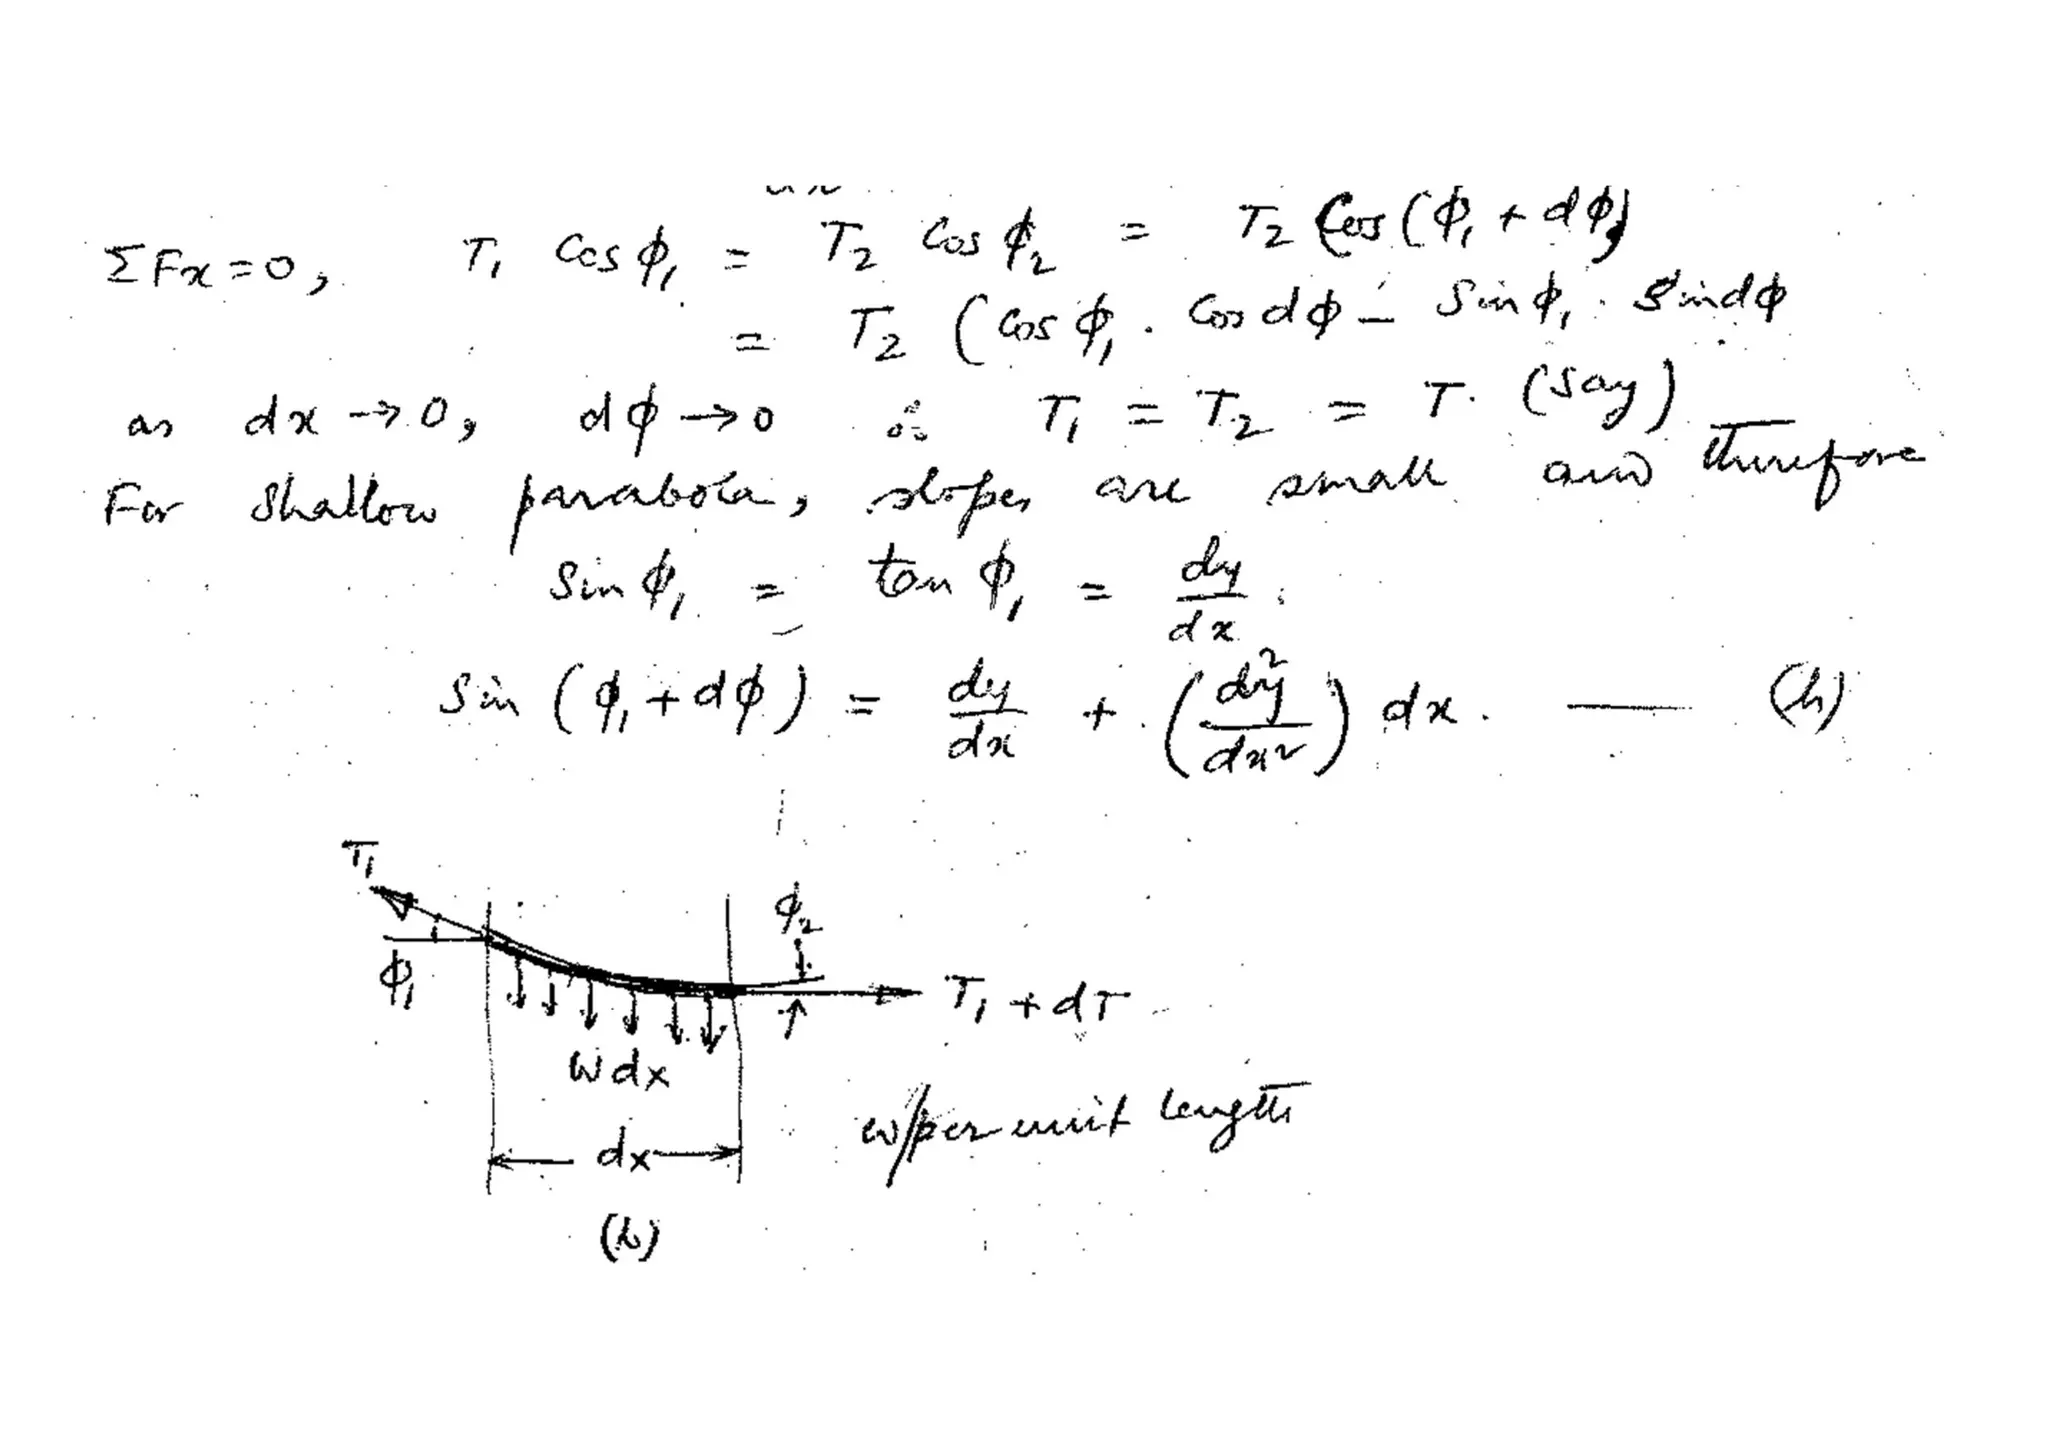 ΣFx = 0, T₁ Cos φ₁ = T₂ Cos φ₂ = T₂ Cos (φ₁ + dφ)
= T₂ (Cos φ₁ . Cos dφ – Sin φ₁ . Sin dφ
as dx → 0, dφ → 0 ∴ T₁ = T₂ = T. (Say)
For Shallow parabola, slopes are small and therefore
Sin φ₁ = tan φ₁ = dy/dx
Sin (φ₁ + dφ) = dy/dx + (dy²/dx²) dx. — (h)
T₁
φ₂
φ₁
T₁ + dT
W dx
w/per unit length
dx